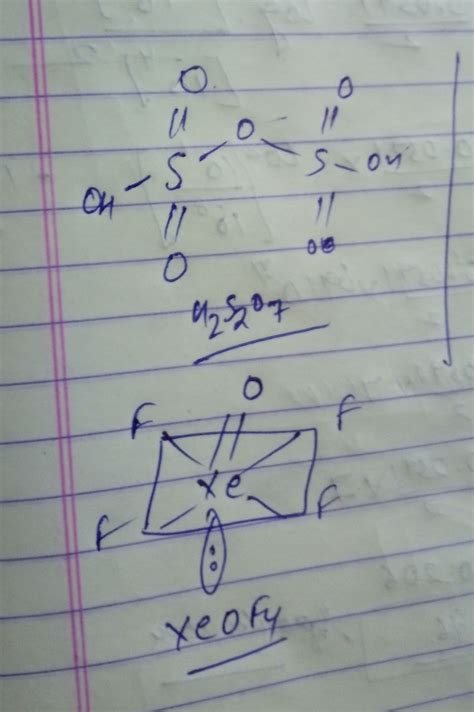 O O
|| O ||
S S - OH
OH || ||
O O
H2S2O7
O
F || F
Xe
F F
:
XeOF4